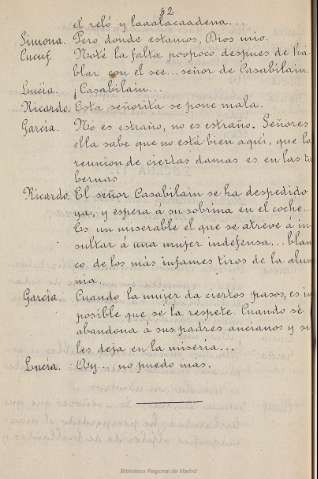 52
el reló y laaalacaadena...
Simona. Pero donde estamos, Dios mio.
Cucuf. Noté la falta pospoco despues de ha
blar con el see... señor de Casabilain.
Lucia. ¡Casabilain...
Ricardo. Esta señorita se pone mala.
Garcia. No es estraño, no es estraño. Señores
ella sabe que no está bien aqui, que la
reunion de ciertas damas es en las ta
bernas
Ricardo. El señor Casabilain se ha despedido
ya, y espera á su sobrina en el coche.
Es un miserable el que se atreve á in
sultar á una mujer indefensa... blan
co, de los más infames tiros de la calum
nia.
Garcia. Cuando la mujer da ciertos pasos, es im
posible que se la respete. Cuando se
abandona á sus padres ancianos y se
les deja en la miseria...
Lucia. Ay... no puedo mas.
Biblioteca Regional de Madrid